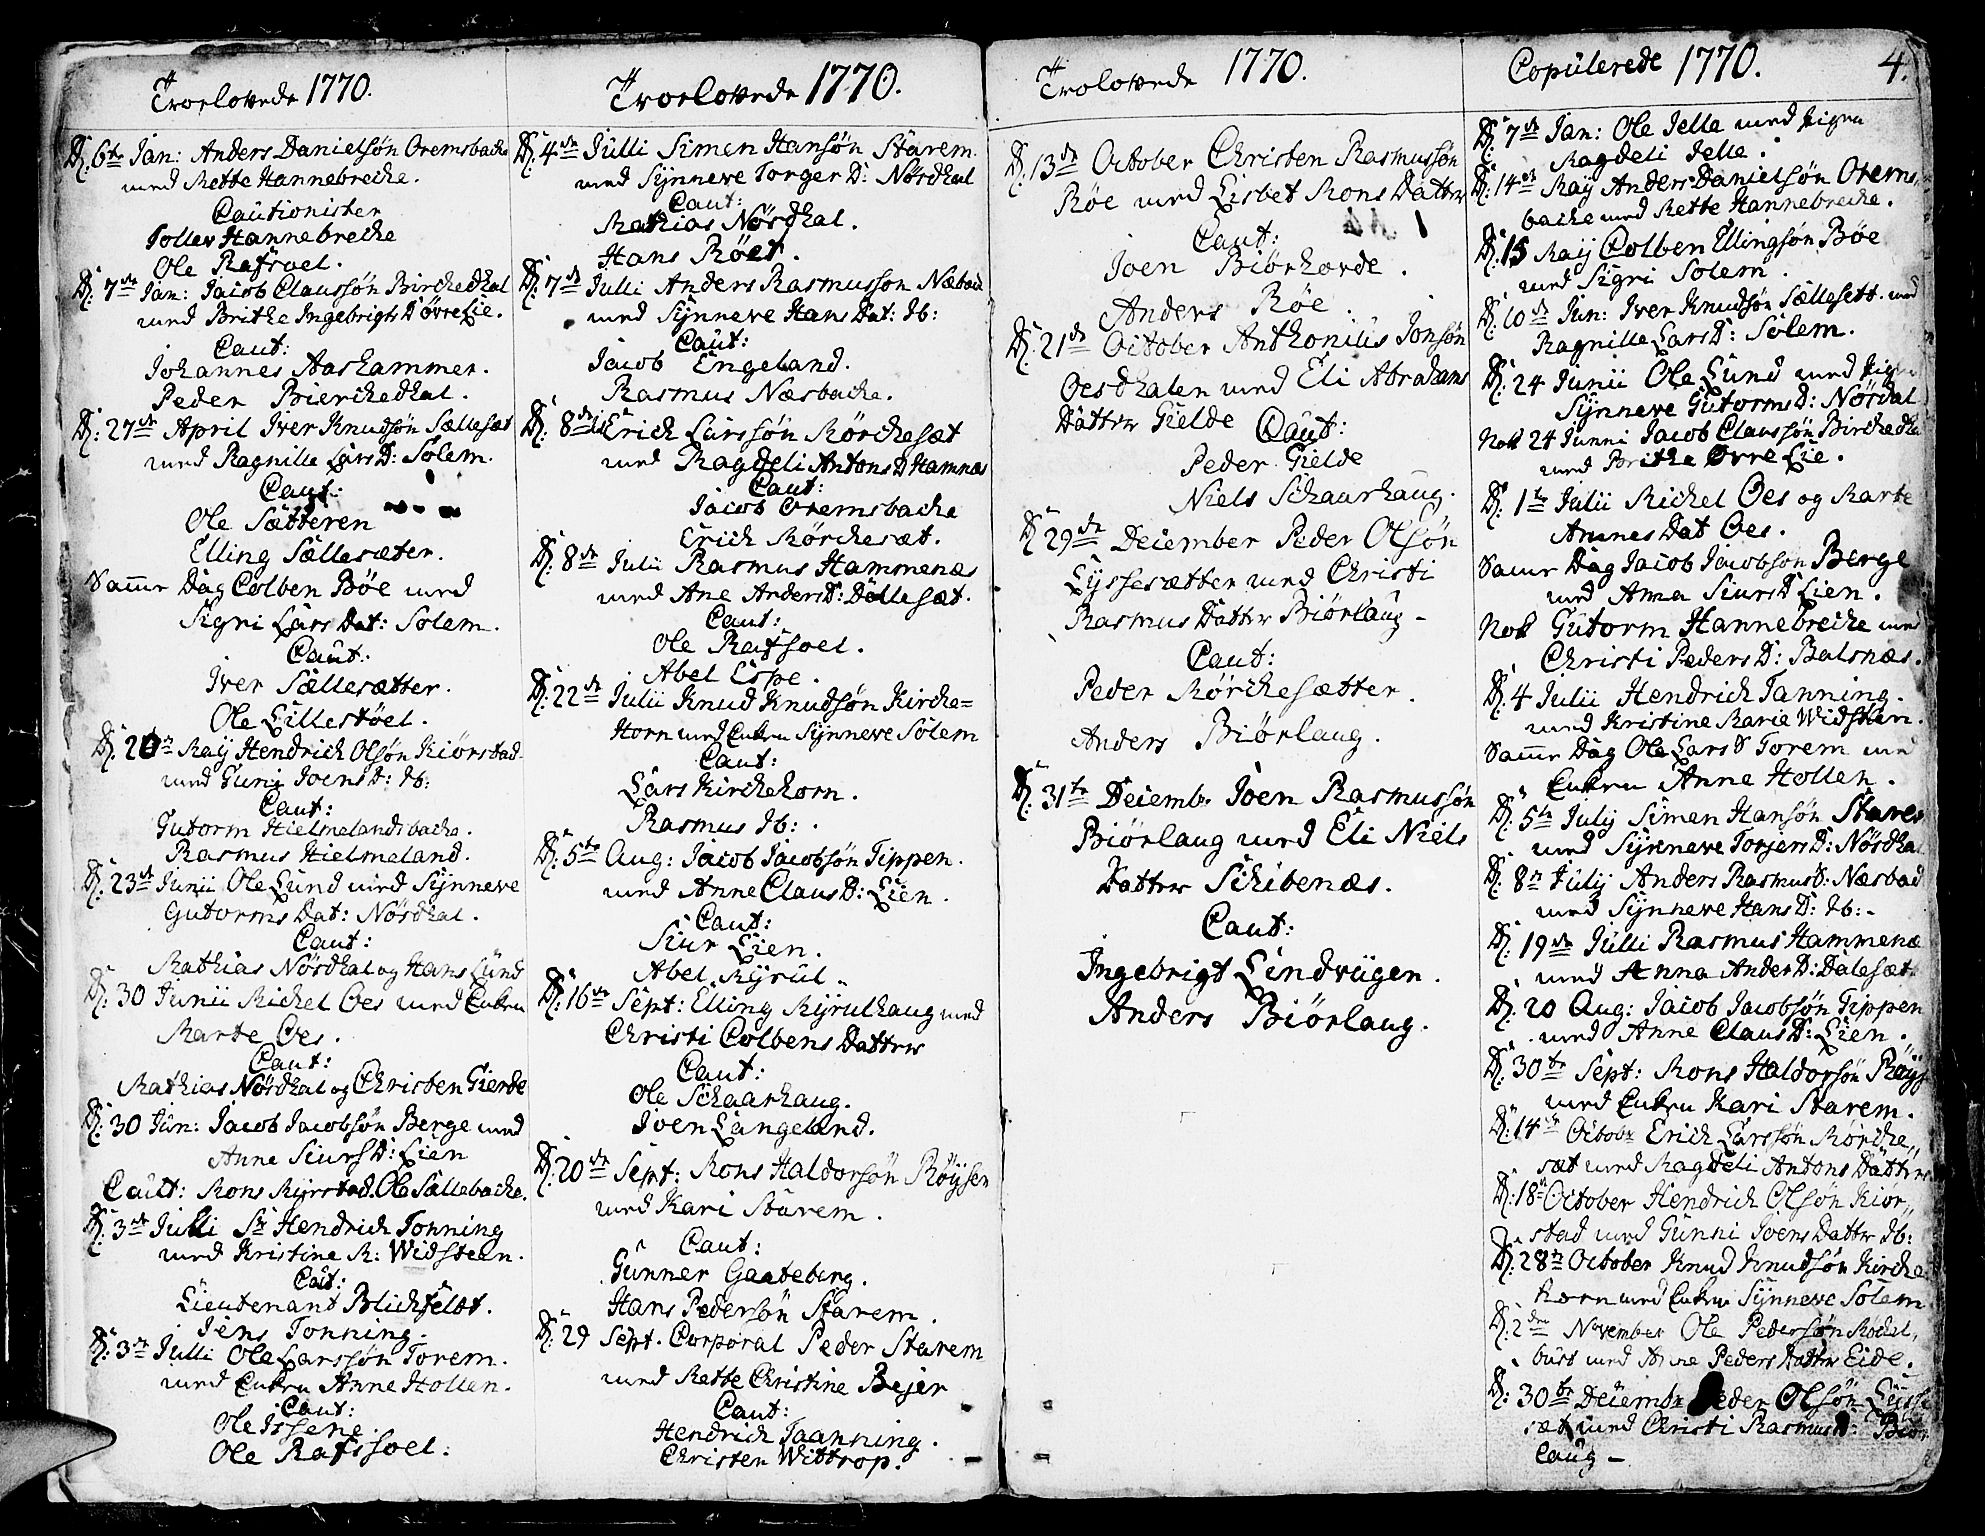 Troelovede 1770.
D: 6te Jan: Anders Danielsøn Oremsbache
med Mette Hannebreche.
Cautionister
Toller Hannebreche
Ole Rafsoel.
D: 7de Jan: Jacob Claussøn Birchedhal
med Brithe Ingebrigts D Øvre Lie.
Caut:
Johannes Aashammer.
Peder Bierchedhal.
D: 27de April Iver Knudsøn Sællesæt
med Ragnille Lars D: Solem.
Caut:
Ole Sætteren
Elling Sællesæter.
Samme Dag Colben Bøe med
Sigri Lars Dat: Solem.
Caut:
Iver Sællesætter.
Ole Lillestøel.
D: 20de May Hendrich Olsøn Kiørstad
med Guni Joens D: Ib:
Caut:
Gutorm Hielmelandsbache.
Rasmus Hielmeland.
D: 23de Junii Ole Lund med Synneve
Gutorms Dat: Nørdhal.
Caut:
Mathias Nørdhal og Hans Lund
D: 30 Junii Michel Oes med Enken
Marte Oes.
Caut:
Mathias Nørdhal og Christen Gierde
D: 30 Jun: Jacob Jacobsøn Berge med
Anne Siurs D: Lien
Caut: Mons Myrstad. Ole Sællebache.
D: 3de Julli Sr Hendrich Tonning
med Kristine M: Widsteen.
Caut:
Lieutenant Blichfeldt.
Jens Tonning.
D: 3de Julli Ole Larssøn Torem.
med Enken Anne Hollen.
Caut:
Ole Issene.
Ole Rafssoel:
Troelovede 1770.
D: 4de Julli Simen Hansøn Starem
med Synneve Torger D: Nørdhal
Caut:
Mathias Nørdhal.
Hans Røer.
D: 7de Julli Anders Rasmusson Næsbach
med Synneve Hans Dat: Ib:
Caut:
Jacob Engeland.
Rasmus Næsbache.
D: 8de Erich Larssøn Mørchesæt
med Ragdeli Antons D Hamnæs
Caut:
Jacob Oremsbache
Erich Mørchesæt.
D: 8de Julii Rasmus Hammenæs
med Ane Anders D: Dallesæt.
Caut:
Ole Rafsoel.
Abel Espe.
D: 22de Julii Knud Knudsøn Kirche=
Horn med Enken Synneve Solem
Caut:
Lars Kirchehorn.
Rasmus Ib:
D: 5te Aug: Jacob Jacobsøn Tippen.
med Anne Claus D: Lien.
Caut:
Siur Lien.
Abel Myrul.
D: 16de Sept: Elling Myrulhaug med
Christi Colbens Datter
Caut:
Ole Schaarhaug.
Joen Langeland.
D: 20de Sept: Mons Haldorsøn Røysen
med Kari Starem.
Caut:
Gunner Gaateberg.
Hans Pedersøn Starem.
D: 29 Sept. Corporal Peder Starem
med Mette Christine Bejer
Caut:
Hendrich Taanning.
Christen Wittrop.
Trolovede 1770.
D: 13de October Christen Rasmussøn
Røe med Lisbet Mons Datter
Caut:
Joen Biørhovde.
Anders Røe.
D: 21de October Anthonius Jonsøn
Oesdhalen med Eli Abrahams
Datter Gielde Caut:
Peder Gielde
Niels Schaarhaug.
D: 29de December Peder Olsøn
Lyssesætter med Christi
Rasmus Datter Biørlaug -
Caut:
Peder Mørchesætter.
Anders Biørlaug.
D: 31te Decembr. Joen Rasmussøn
Biørlaug med Eli Niels
Datter Schibenæs.
Caut:
Ingebrigt Lindvigen.
Anders Biørlaug.
Copulerede 1770. 4.
D: 7de Jan: Ole Jelle med Pigen
Magdeli Jelle.
D: 14de May Anders Danielsøn Orems,
bache med Mette Hannebreche.
D: 15 May Colben Ellingsøn Bøe
med Sigri Solem.
D: 10de Jun: Iver Knudsøn Sællesett. med
Ragnille Lars D: Solem.
D: 24 Junii Ole Lund med Pigen
Synneve Gutorms D: Nørdal
Nok 24 Junni Jacob Claussøn Birchedha
med Brithe Øvre Lie.
D: 1te Julii Michel Oes og Marte
Annes Dat Oes.
Samme Dag Jacob Jacobsøn Berge
med Anna Siurs D Lien.
Nok Gutorm Hannebreche med
Christi Peders D: Balsnæs.
D: 4 Julii Hendrich Tanning.
med Kristine Marie Widsteen.
Samme Dag Ole Lars S Torem med
Enken Anne Hollen.
D: 5te July Simen Hansøn Stare
med Synneve Torgers D: Nørdhal
D: 8de July Anders Rasmus S: Næsbach
med Synneve Hans D: Ib:
D: 19de Julli Rasmus Hammenæ
med Anna Ander D: Dalesæt
D: 20 Aug: Jacob Jacobsøn Tippen
med Anne Claus D: Lien.
D: 30te Sept: Mons Haldorsøn Røys
med Enken Kari Starem.
D: 14de Octobr Erich Larssøn Mørche,,
sæt med Magdeli Antons Datter
D: 18de October Hendrich Olsøn Kiør,,
stad med Gunni Joens Datter Ib:
D: 28de October Knud Knudsøn Kirche
horn med Enken Synneve Solem
D: 2den November Ole Pedersøn
med Anne Peders Datter Eide.
D: 30te Decembr Peder Olsøn Lysse
sæt med Christi Rasmus D: Biør
laug -